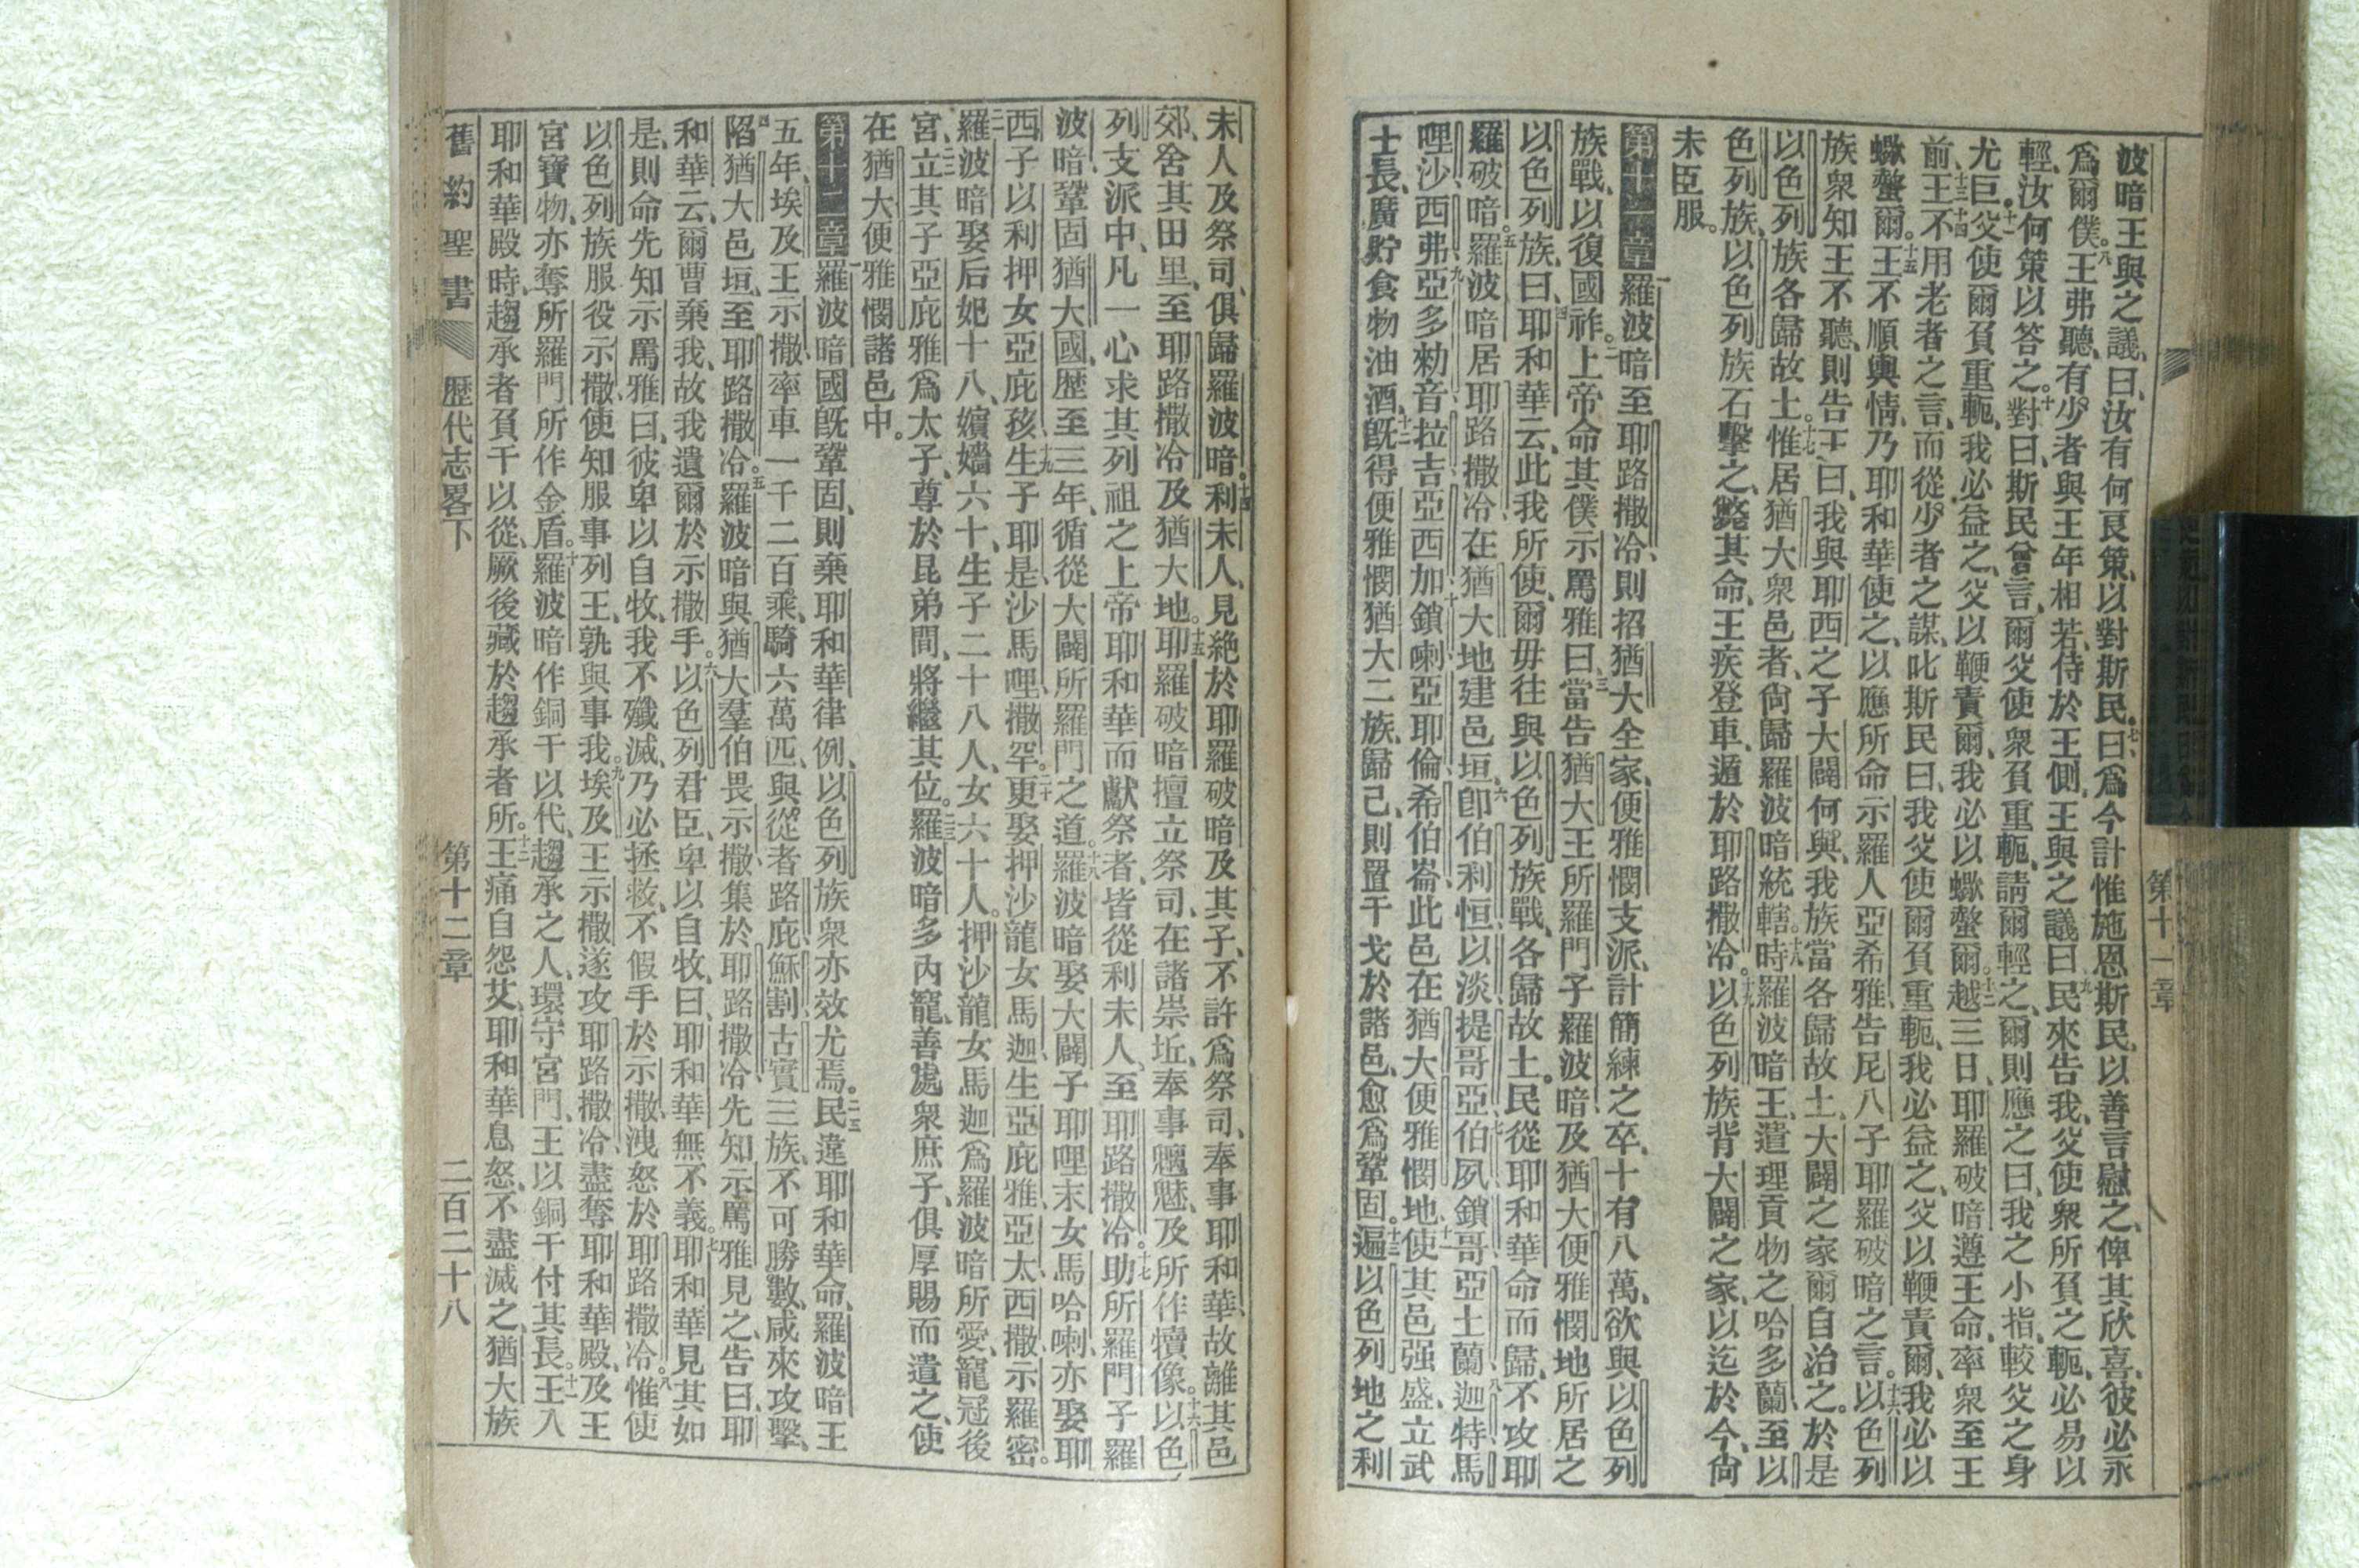 第十一章
波暗王與之議、曰、汝有何良策、以對斯民。七曰、爲今計惟施恩斯民、以善言慰之、俾其欣喜、彼必永
爲爾僕。八王弗聽、有少者與王年相若、侍於王側、王與之議曰、九民來告我、父使眾所負之軛、必易以
輕、汝何策以答之。十對曰、斯民曾言、爾父使眾負重軛、請爾輕之、爾則應之曰、我之小指、較父之身
尤巨。十一父使爾負重軛、我必益之、父以鞭責爾、我必以蠍螫爾。十二越三日、耶羅破暗遵王命、率眾至王
前、十三十四王不用老者之言、而從少者之謀、叱斯民曰、我父使爾負重軛、我必益之、父以鞭責爾、我必以
蠍螫爾。十五王不順輿情、乃耶和華使之、以應所命示羅人亞希雅、告尼八子耶羅破暗之言。十六以色列
族眾知王不聽、則告王曰、我與耶西之子大闢何與、我族當各歸故土、大闢之家爾自治之。於是
以色列族各歸故土。十七惟居猶大眾邑者、尚歸羅波暗統轄。十八時羅波暗王、遣理貢物之哈多蘭至以
色列族、以色列族石擊之、斃其命、王疾登車、遁於耶路撒冷。十九以色列族背大闢之家、以迄於今、尚
未臣服。
第十一章一羅波暗至耶路撒冷、則招猶大全家、便雅憫支派、計簡練之卒、十有八萬、欲與以色列
族戰、以復國祚。二上帝命其僕示罵雅曰、三當告猶大王所羅門子羅波暗、及猶大便雅憫地所居之
以色列族、曰、四耶和華云、此我所使、爾毋往與以色列族戰、各歸故土。民從耶和華命而歸、不攻耶
羅破暗。五羅波暗居耶路撒冷、在猶大地建邑垣、六卽伯利恒、以淡、提哥亞、七伯夙、鎖哥、亞土蘭、八迦特、馬
哩沙、西弗、九亞多勒音、拉吉、亞西加、十鎖喇、亞耶倫、希伯崙、此邑在猶大便雅憫地、十一使其邑强盛、立武
士長、廣貯食物油酒、十二旣得便雅憫猶大二族、歸己、則置干戈於諸邑、愈爲鞏固。十三遍以色列地之利
未人及祭司、俱歸羅波暗。十四利未人、見絶於耶羅破暗及其子、不許爲祭司、奉事耶和華、故離其邑
郊、舍其田里、至耶路撒冷及猶大地。十五耶羅破暗擅立祭司、在諸崇坵、奉事魑魅、及所作犢像。十六以色
列支派中、凡一心求其列祖之上帝耶和華而獻祭者、皆從利未人、至耶路撒冷。十七助所羅門子羅
波暗、鞏固猶大國、歷至三年、循從大闢所羅門之道。十八羅波暗娶大闢子耶哩末女馬哈喇、亦娶耶
西子以利押女亞庇孩、十九生子耶是、沙馬哩、撒罕。二十更娶押沙龍女馬迦、生亞庇雅、亞太、西撒、示羅密。
二一羅波暗娶后妃十八、嬪嬙六十、生子二十八人、女六十人。押沙龍女馬迦、爲羅波暗所愛、寵冠後
宮、二二立其子亞庇雅爲太子、尊於昆弟間、將繼其位。二三羅波暗多內寵、善處眾庶子、俱厚賜而遣之、使
在猶大便雅憫諸邑中。
第十二章一羅波暗國旣鞏固、則棄耶和華律例、以色列族眾亦效尤焉。二三民違耶和華命、羅波暗王
五年、埃及王示撒、率車一千二百乘、騎六萬匹、與從者路庇、穌割、古實三族、不可勝數、咸來攻擊、
四陷猶大邑垣、至耶路撒冷。五羅波暗與猶大羣伯畏示撒、集於耶路撒冷、先知示罵雅見之、告曰、耶
和華云、爾曹棄我、故我遺爾於示撒手。六以色列君臣、卑以自牧、曰、耶和華無不義。七耶和華見其如
是、則命先知示罵雅曰、彼卑以自牧、我不殲滅、乃必拯救、不假手於示撒、洩怒於耶路撒冷。八惟使
以色列族服役示撒、使知服事列王、孰與事我。九埃及王示撒、遂攻耶路撒冷、盡奪耶和華殿、及王
宮寶物、亦奪所羅門所作金盾。十羅波暗作銅干以代、趨承之人、環守宮門、王以銅干付其長。十一王入
耶和華殿時、趨承者負干以從、厥後藏於趨承者所。十二王痛自怨艾、耶和華息怒、不盡滅之、猶大族
舊約聖書 歷代志畧下 第十二章 二百二十八